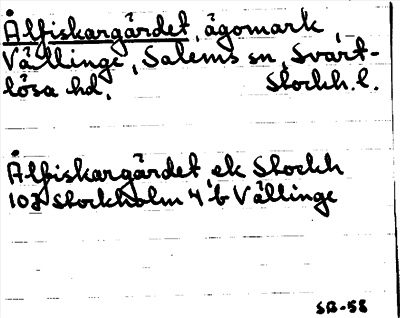 Ålfiskargärdet, ägomark,
Vällinge, Salems sn, Svart-
lösa hd, Stockh. l.
Ålfiskargärdet, ek Stockh
10J Stockholm 4 b Vällinge
SB-58